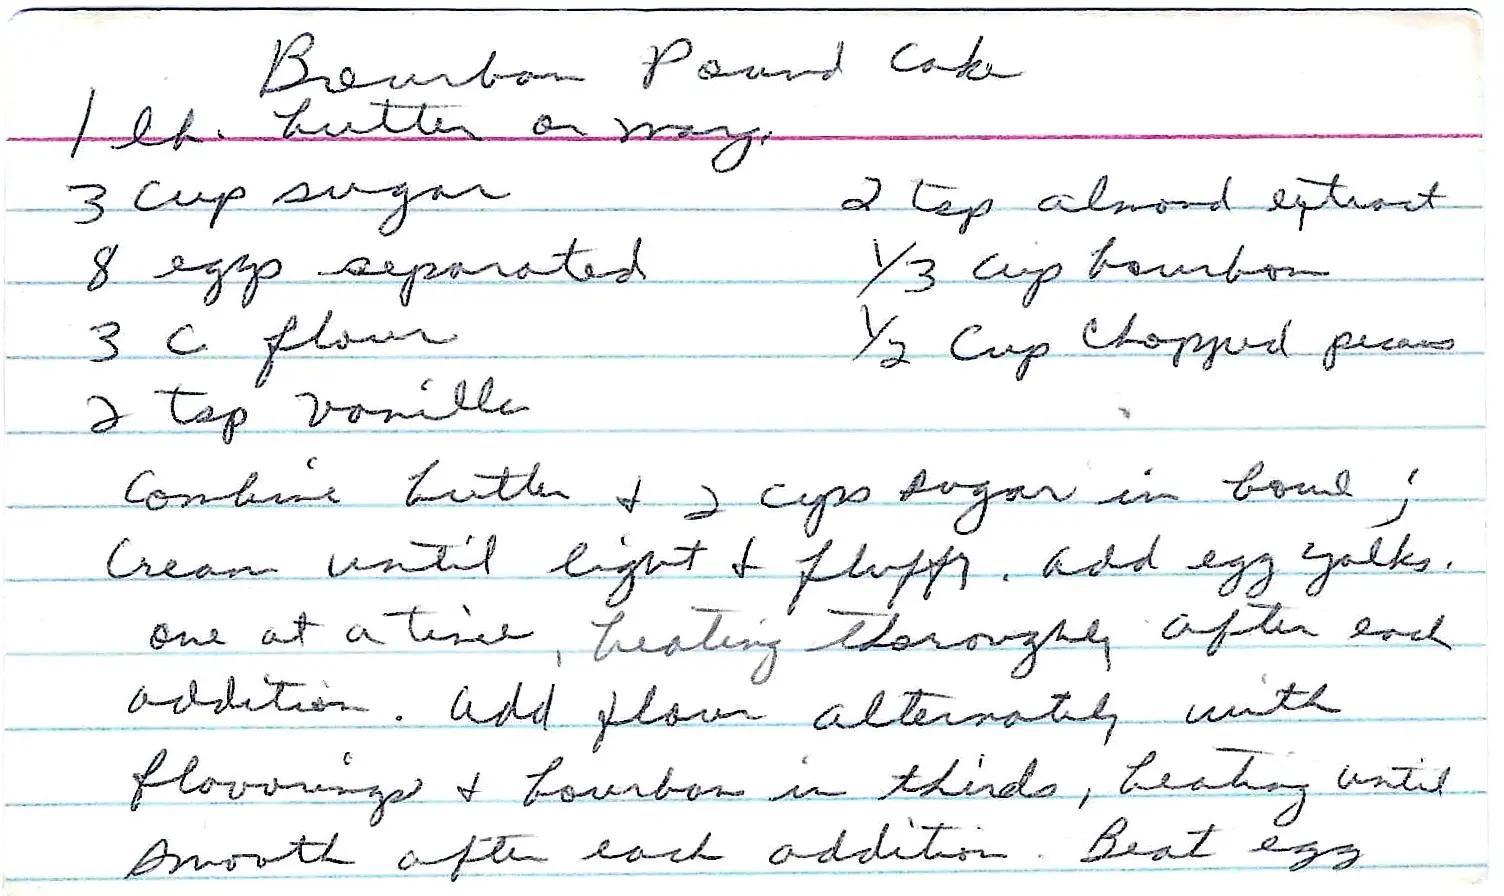 Bourbon Pound Cake
1 lb. butter or marg.
3 cup sugar
8 eggs separated
3 c flour
2 tsp vanilla
2 tsp almond extract
1/3 cup bourbon
1/2 cup chopped pecans
Combine butter & 2 cups sugar in bowl;
Cream until light & fluffy. add egg yolks.
one at a time, beating thoroughly after each
addition. add flour alternately with
flavorings & bourbon in thirds, beating until
smooth after each addition. Beat egg